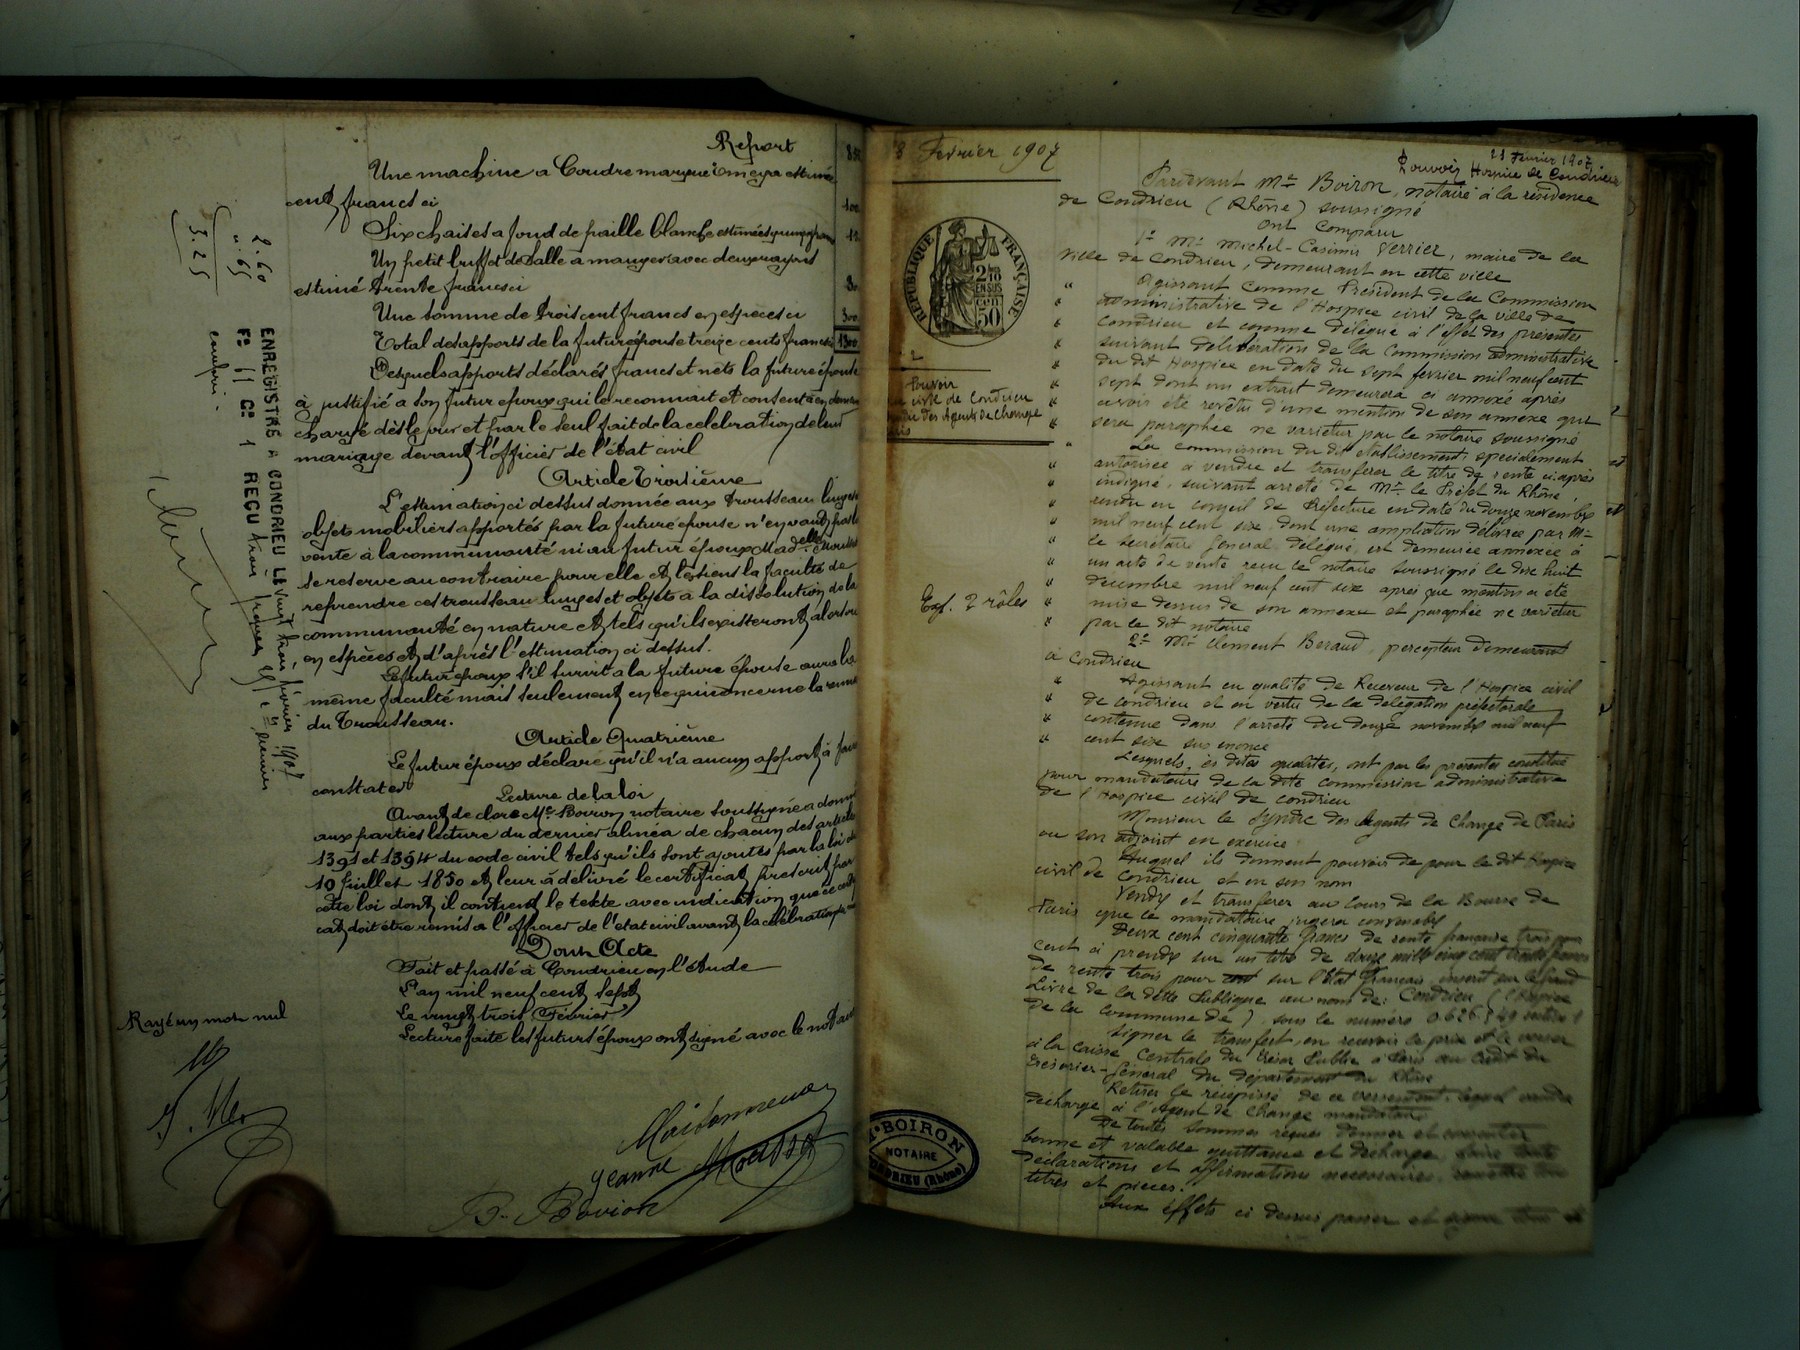 Report
Une machine a Coudre marque Omega estimée
cent francs ci 100
Six chaises a fond de paille blanche estimées
Un petit buffet de Salle a manger avec deux rayons
estimé trente francs ci 30
Une somme de trois cent francs en espèces ci 300
Total des apports de la future épouse treize cents francs 1300
Desquels apports déclarés francs et nets la future épouse
à justifié a son futur époux qui le reconnait et consent a en demeurer
chargé dès le jour et par le seul fait de la celebration de leur
mariage devant l'officier de l'état civil
Article Troisième
L'estimation ci dessus donnée aux trousseau linges
objets mobiliers apportés par la future épouse n'en vaut pas
vente à la communauté ni au futur époux Madelle
se reserve au contraire pour elle et les siens la faculté de
reprendre ces trousseau linges et objets à la dissolution de la
communauté en nature et tels qu'ils existeront alors ou
en espèces et d'après l'estimation ci dessus.
Le futur époux s'il survit a la future épouse aura la
même faculté mais seulement en ce qui concerne la
du Trousseau.
Article Quatrième
Le futur époux déclare qu'il n'a aucun apport à faire
constater
Lecture de la loi
Avant de clore Me Boiron notaire soussigné a donné
aux parties lecture du dernier alinéa de chacun des articles
1391 et 1394 du code civil tels qu'ils sont ajoutés par la loi du
10 Juillet 1850 et leur à délivré le certificat prescrit par
cette loi dont il contient le texte avec indication que ce certifi
cat doit être remis a l'officier de l'état civil avant la célébration
Dont Acte
Fait et passé à Condrieu en l'étude
L'an mil neuf cent sept
Le vingt trois Février
Lecture faite les futurs époux ont signé avec le notaire
Jeanne
B. Boiron
Rayé un mot nul
2.60
0.65
3.25
ENREGISTRÉ A CONDRIEU LE vingt trois février 1907
Fo 61 Co 1 REÇU trois francs 25
8 Février 1907
RÉPUBLIQUE FRANÇAISE
2/10 EN SUS
50 cen
Pouvoir
civil de Condrieu
des Agents de Change
Exp. 2 rôles
Me BOIRON
NOTAIRE
CONDRIEU (Rhône)
Février 1907
Pouvoir Hospice de Condrieu
Pardevant Me Boiron, notaire à la résidence
de Condrieu (Rhône) soussigné
Ont Comparu
1º Mr Michel-Casimir Verrier, maire de la
Ville de Condrieu, demeurant en cette ville
" Agissant comme Président de la Commission
" administrative de l'Hospice civil de la ville de
" Condrieu et comme délégué à l'effet des présentes
" suivant délibération de la Commission administrative
" du dit Hospice en date du sept fevrier mil neuf cent
" sept dont un extrait demeurera ci annexé après
" avoir été revêtu d'une mention de son annexe qui
" sera paraphée ne varietur par le notaire soussigné
" La commission du dit établissement spécialement
" autorisée à vendre et transférer le titre de rente ci après
" indiqué, suivant arrêté de Mr le Préfet du Rhône,
" rendu en conseil de Préfecture en date du douze novembre
" mil neuf cent six, dont une ampliation délivrée par Mr
" le Secrétaire Général délégué, est demeurée annexée à
" un acte de vente reçu le notaire soussigné le dix huit
" décembre mil neuf cent six après que mention a été
" mise dessus de son annexe et paraphée ne varietur
" par le dit notaire
2º Mr Clement Beraud, percepteur demeurant
à Condrieu
" Agissant en qualité de Receveur de l'Hospice civil
" de Condrieu et en vertu de la délégation préfectorale
" contenue dans l'arrêté du douze novembre mil neuf
" cent six sus énoncé
Lesquels, ès dites qualités, ont par les présentes constitué
pour mandataire de la dite commission administrative
de l'Hospice civil de Condrieu
Monsieur le Syndic des Agents de Change de Paris
ou son adjoint en exercice
Auquel ils donnent pouvoir de pour le dit Hospice
civil de Condrieu et en son nom
Vendre et transférer au cours de la Bourse de
Paris que le mandataire jugera convenable
Deux cent cinquante francs de rente française trois pour
cent à prendre sur un titre de douze mille cinq cent francs
de rente trois pour cent sur l'Etat Français inscrit au Grand
Livre de la dette Publique au nom de: Condrieu (l'Hospice
de la commune de) sous le numéro
Signer le transfert, en recevoir le prix et le verser
à la caisse Centrale du Trésor Public à Paris au crédit du
Trésorier-Général du département du Rhône
Retirer le récépissé de ce versement,
décharge à l'Agent de Change mandataire
De toutes sommes reçues donner et consentir
bonne et valable quittance et décharge,
déclarations et affirmations nécessaires,
titres et pièces.
Aux effets ci dessus passer et signer